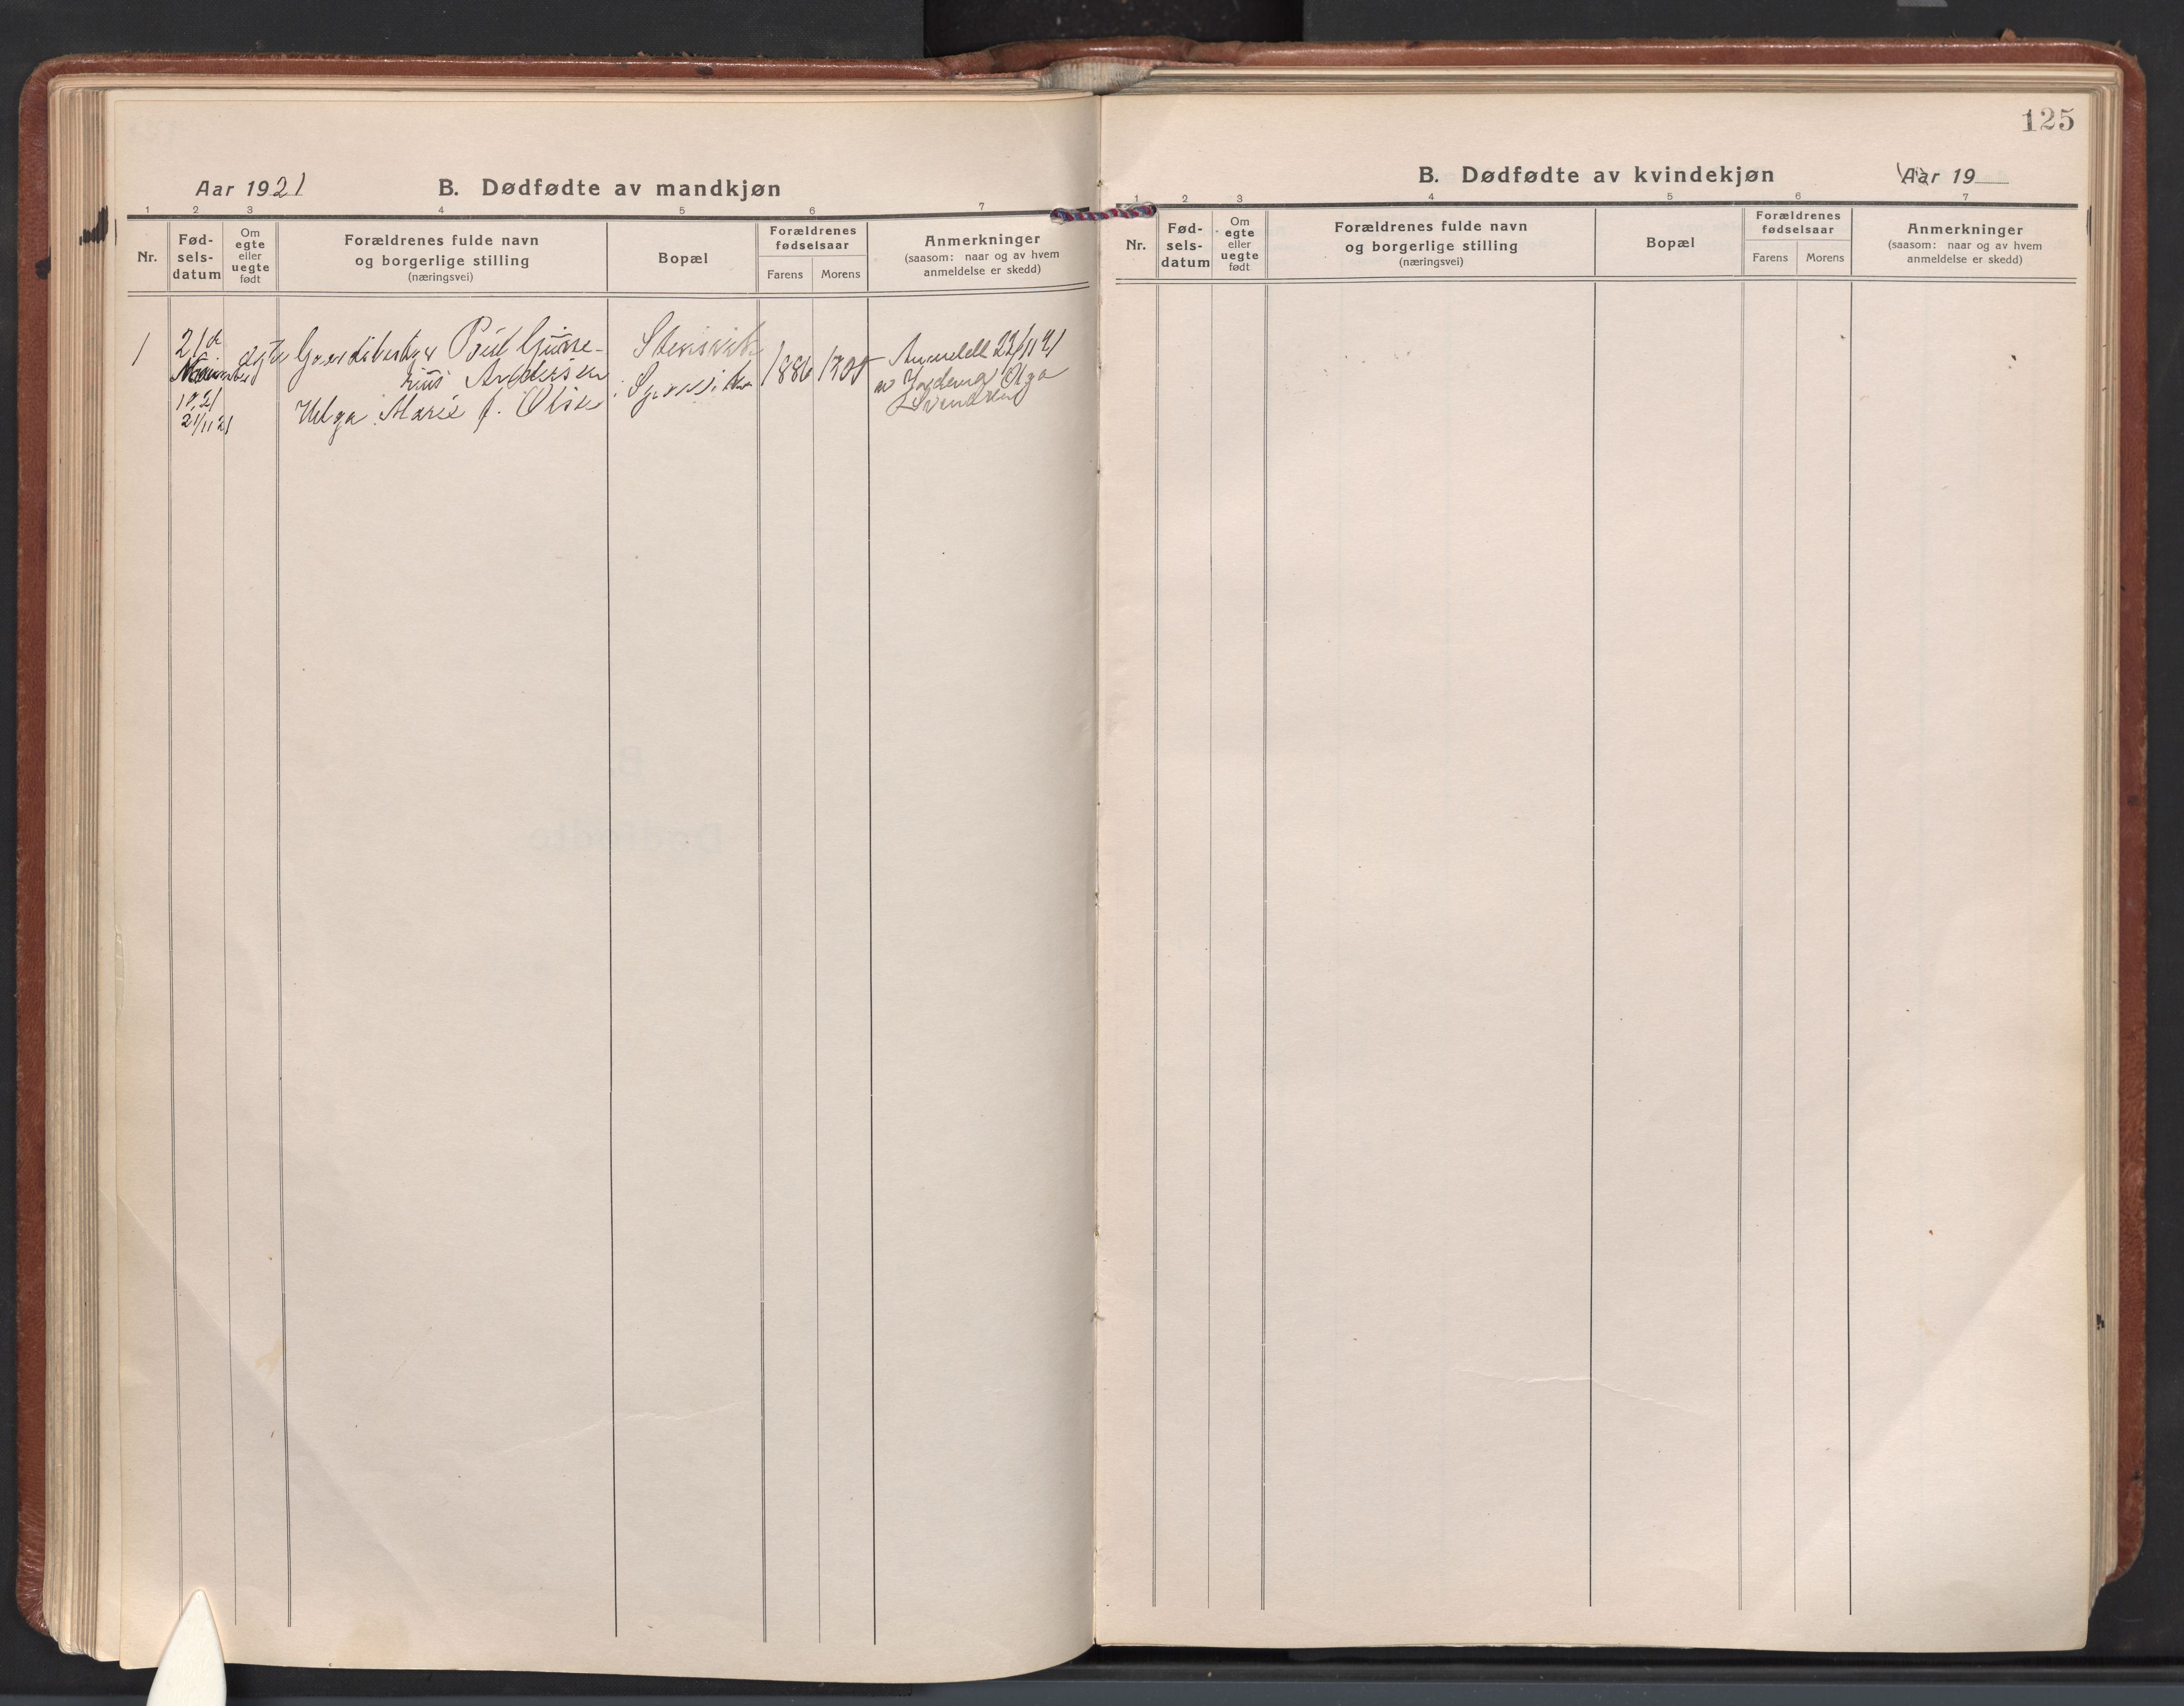 Aar 1921
B. Dødfødte av mandkjøn
1 2 3 4 5 6 7
Nr.
Fød-
sels-
datum
Om
egte
eller
uegte
født
Forældrenes fulde navn
og borgerlige stilling
(næringsvei)
Bopæl
Forældrenes
fødselsaar
Farens Morens
Anmerkninger
(saasom: naar og av hvem
anmeldelse er skedd)
1
21de
November
1921
21/11 21
egte
Gaardbruker
Andersen
Helga Marie f. Olsen
1886
Anmeldt 22/11 21
av Jordemor Olga
125
B. Dødfødte av kvindekjøn
Aar 19
1 2 3 4 5 6 7
Nr.
Fød-
sels-
datum
Om
egte
eller
uegte
født
Forældrenes fulde navn
og borgerlige stilling
(næringsvei)
Bopæl
Forældrenes
fødselsaar
Farens Morens
Anmerkninger
(saasom: naar og av hvem
anmeldelse er skedd)